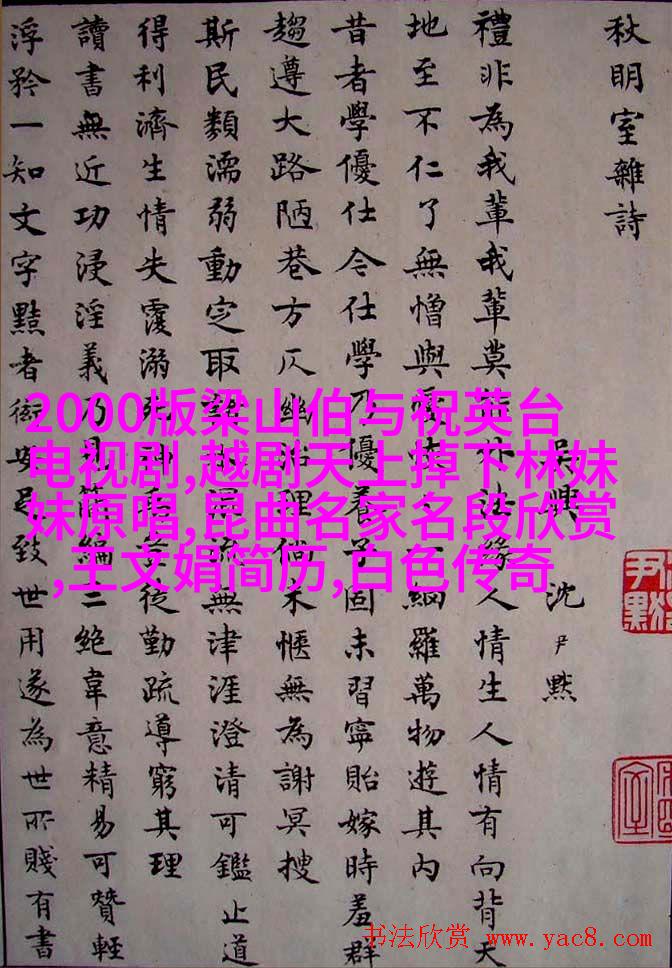 秋明室雜詩
吳興 沈尹默
禮非為我輩我輩莫外法緣人情生人情有向背天
地至不仁了無憎與愛一網羅萬物遊其内
昔者學優仕令仕學乃優養子固未習寧貽嫁時羞群
趨遵大路陋巷方仄幽治理倘未愜無為謝冥搜
斯民類濡弱動定取濁流無津涯澄清可鑑止道
得利濟生情失覆溺死神從勤疏導窮其理
讀書無近功浸淫義乃見簡編二絕韋意精易可贊輕
浮矜一知文字黠者衒妄足致世用遂為世所賤有書
2000版梁山伯与祝英台
电视剧,越剧天上掉下林妹
妹原唱,昆曲名家名段欣赏
,王文娟简历,白色传奇
尹默
书法欣赏 www.yac8.com